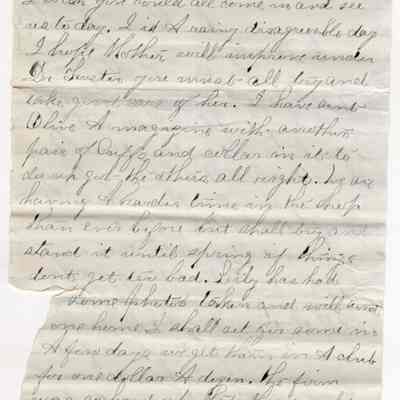 I wish you could all come in and see
us to day. I is A rainy disagreeable day
I hope Mother will improve under
Dr you must all try and
take good care of her. I have sent
Olive A magazine with another
pair of Cuffs and collar in it to
do up got the others all right. We are
having A harder time in the shop
than ever before but shall try and
stand it until spring if things
dont get too bad. has had
some photos taken and will send
one home I shall get some in
A few days we get them in A club
for one dollar A dozen. The firm